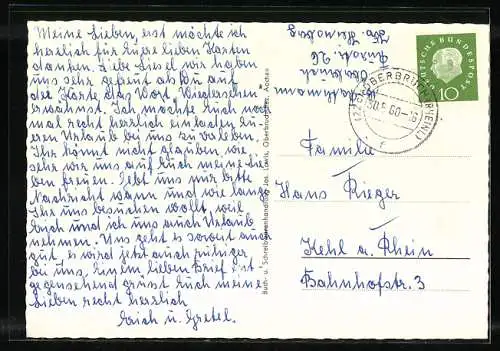 Meine Lieben, erst möchte ich
herzlich für Euere lieben Karten
danken. Liebe Liesel wir haben
uns sehr gefreut als Du auf
der Karte das Wort Wiedersehen
erwähnst. Ich möchte Euch noch
mal recht herzlich einladen
eueren Urlaub bei uns zu verleben.
Ihr könnt nicht glauben wie
sehr wir uns auf Euch meine Lie-
ben freuen. Gebt uns nur bitte
Nachricht wann und wie lange
Ihr uns besuchen wollt, weil
Erich und ich uns auch Urlaub
nehmen. Uns geht es soweit ganz
gut, es wird jetzt auch ruhiger
bei uns. Einem lieben Brief
entgegensehend grüsst Euch meine
Lieben recht herzlich
Erich u. Gretel.
Buch- u. Schreibwarenhandlung Jos. Oberbruch, Aachen
Oberbruch
DEUTSCHE BUNDESPOST
10
OBERBRUCH (RHEINL)
30.5.60
f
Familie
Hans Rieger
Kehl a. Rhein
Bahnhofstr. 3